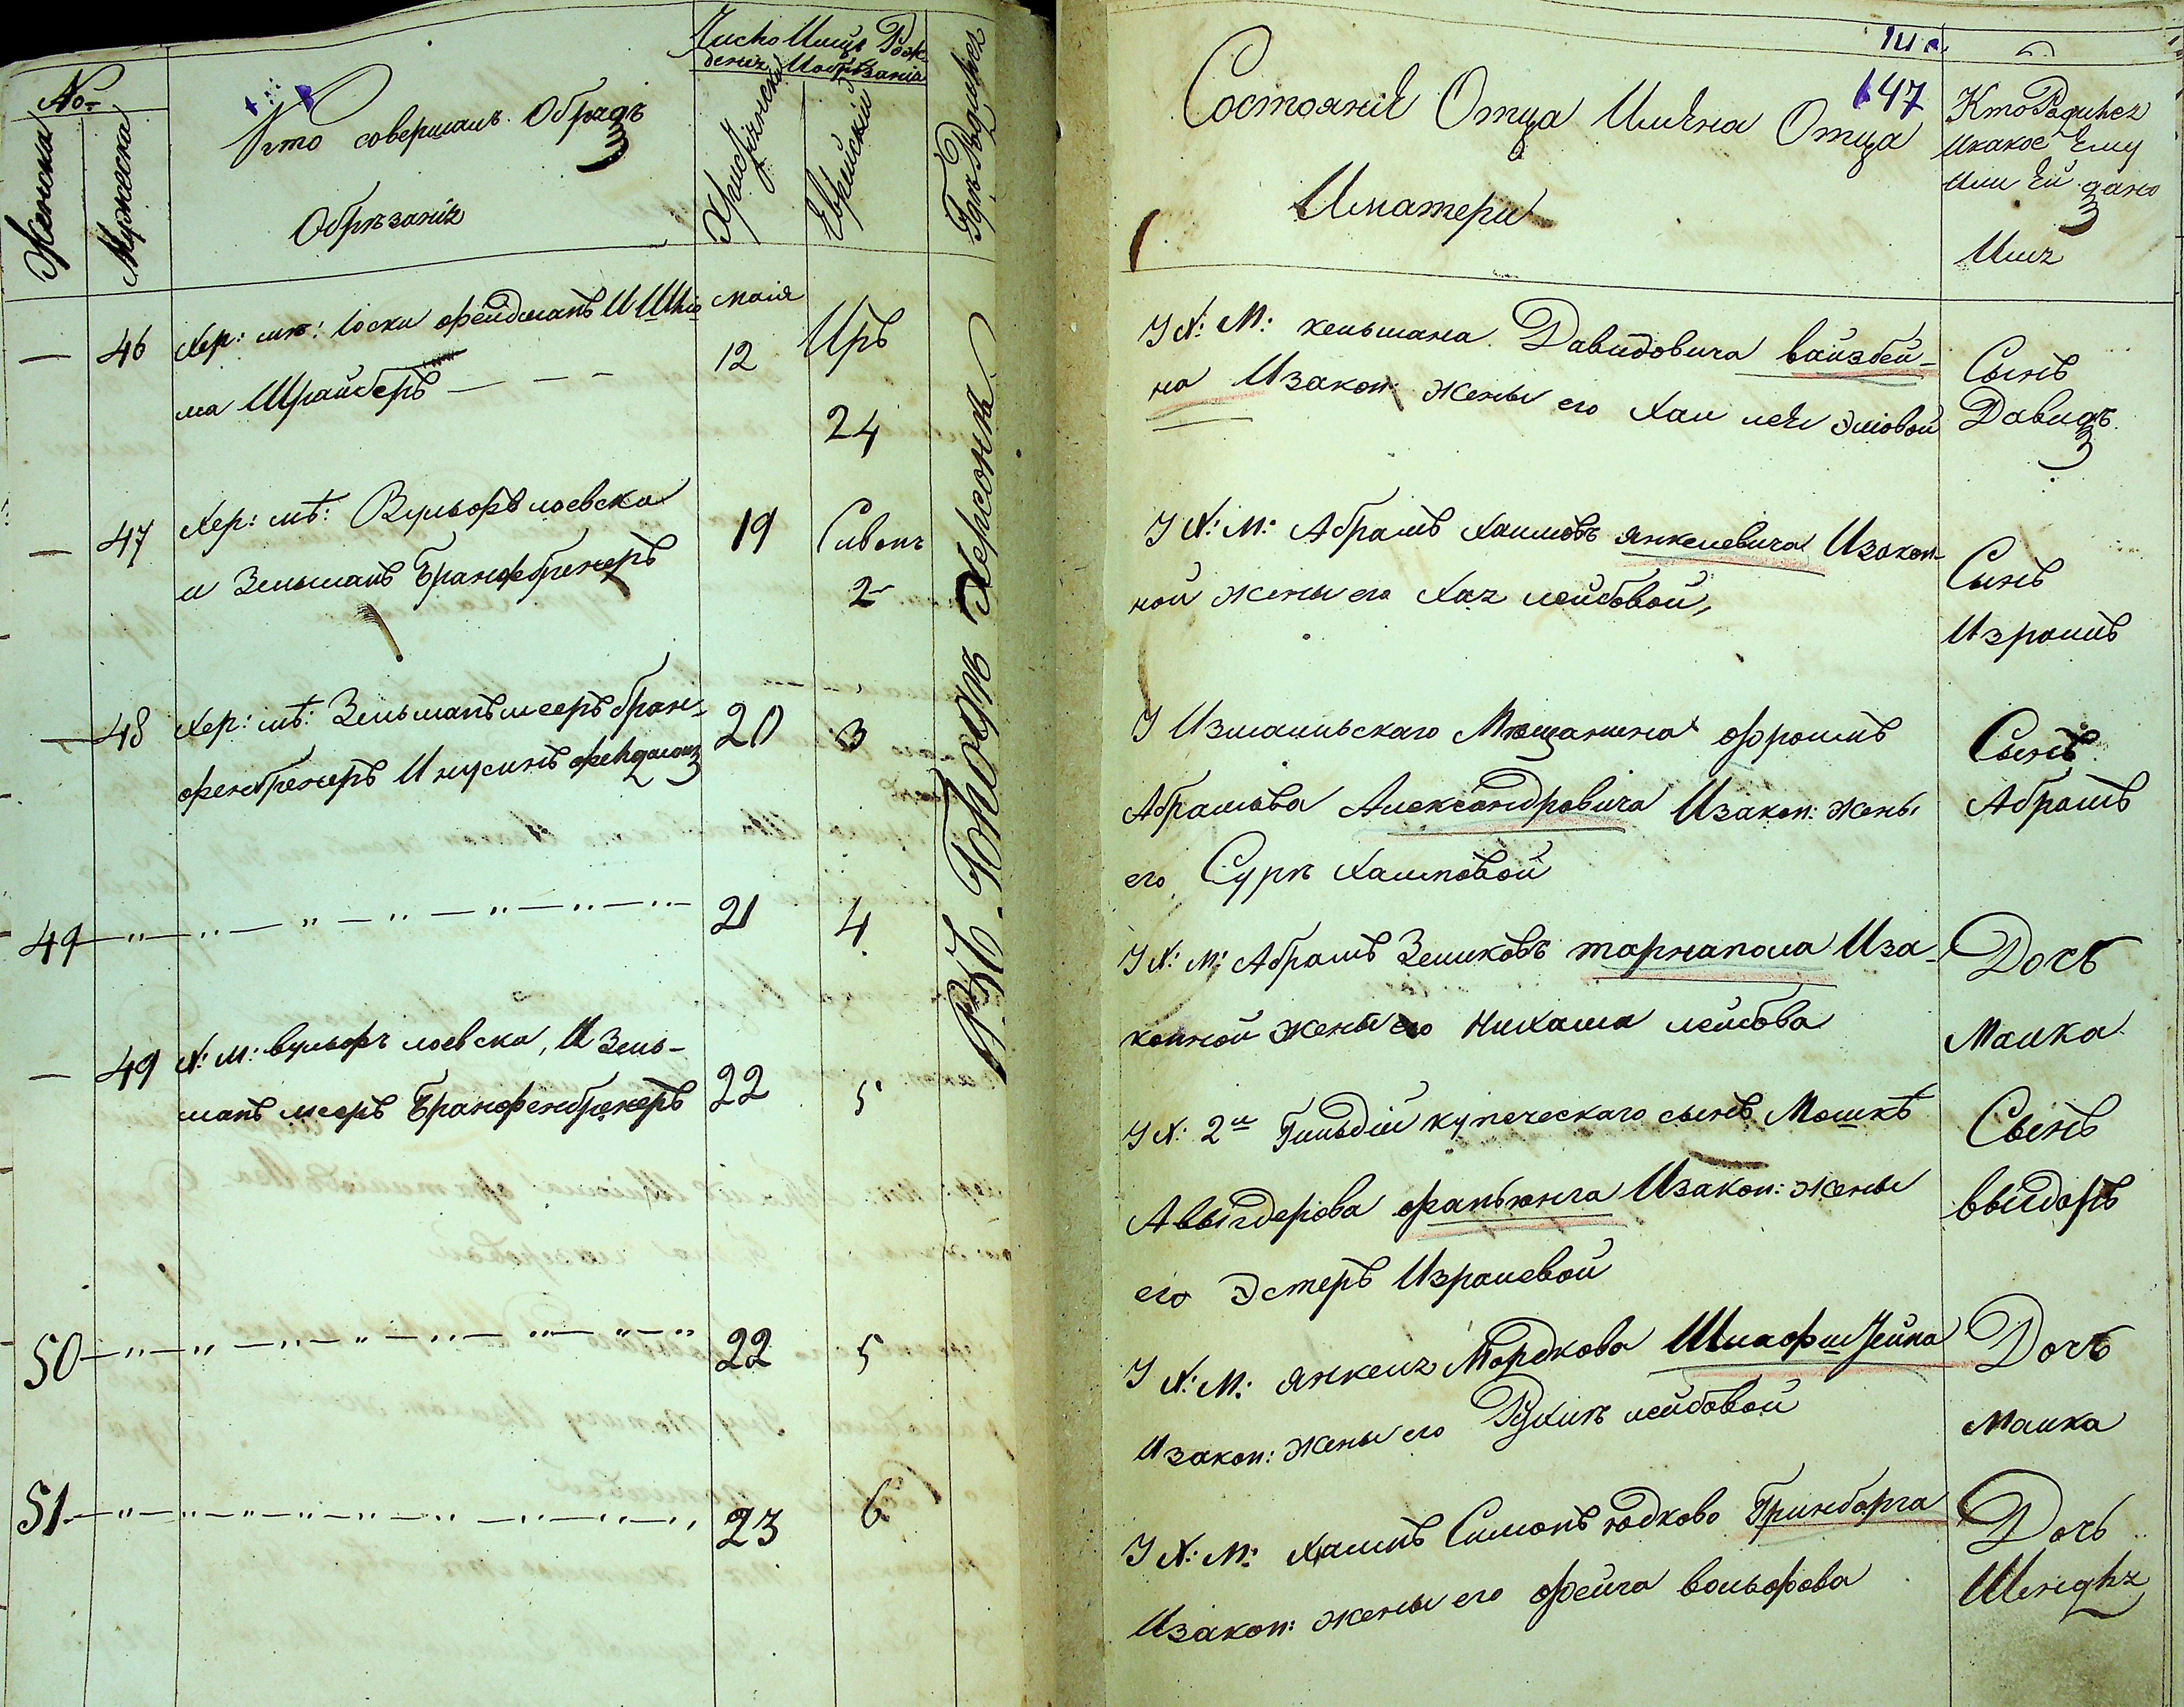 No:
Женска
Мужеска
Кто совершалъ Обрядъ
Обрѣзанія
Число Имѣц Рож-
денія Иобрѣзанія
Христіянскій
Еврейскій
Гдѣ Родился
Въ Городѣ Херсонѣ
147
Состояніе Отца Имена Отца
Иматери
Кто Родился
Икакое Ему
Или Ей дано
Имя
— 46 Хер: мѣ: Іоски фейдманъ И Шлио
ма Шрайберъ — — —
маія
12
Иръ
24
У Х: М: кельмана Давидовича вайзбей-
на Изакон: Жены его Хаи леи Эліовой
Сынъ
Давидъ
— 47 Хер: мѣ: Вульфъ лоевска
и Зельманъ Бранфбренеръ
19
Сивонъ
2
У Х: М: Абрамъ Хаимовъ янкелевича Изакон-
ной жены его Хая лейбовой,
Сынъ
Израиль
— 48 Хер: мѣ: Зельманъ мееръ бран-
фенбренеръ И нусинъ фейдман
20
3
У Измаильскаго Мѣщанина фроимъ
Абрамова Александровича Изакон: Жены
его Суръ Хаимовой
Сынъ
Абрамъ
49
21
4
У Х: М: Абрамъ Зеликовъ тарнапола Иза-
конной жены его Нихама лейбова
Дочь
Малка
— 49 Х: М: вульфъ лоевска, И Зель-
манъ мееръ Бранфенбренеръ
22
5
У Х: 2й Гильдіи купеческаго сынъ Мошкѣ
Авыгдерова фаньюнга Изакон: жены
его Эстеръ Израилевой
Сынъ
выгдоръ
50
22
5
У Х: М: янкеля Мордкова Шлафштейна
Изакон: Жены его Рухлѣ лейбовой
Дочь
Малка
51
23
6
У Х: М: Хаимъ Симонъ юдково Гринбарга
Изакон: жены его фейга вольфова
Дочь
Шендля